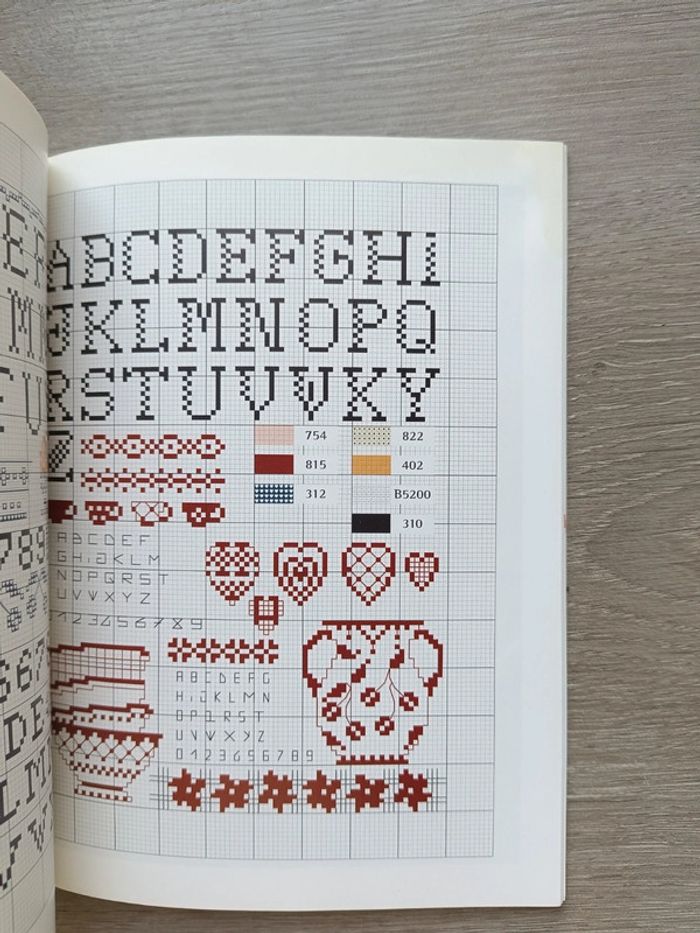 ABCDEFGHi
JKLMNOPQ
RSTUVWKY
754
822
815
402
312
B5200
310
ABCDEF
GHiJKLM
NOPQRST
UVWXYZ
123456789
ABCDEFG
HiJKLMN
OPQRST
UVWXYZ
0123456789
789
DE